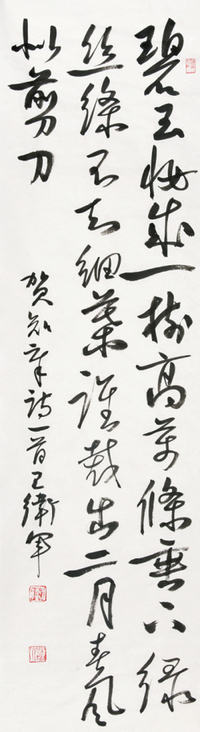 碧玉妝成一樹高萬條垂下綠
絲絛不知細葉誰裁出二月春風
似剪刀
賀知章詩一首王衛軍